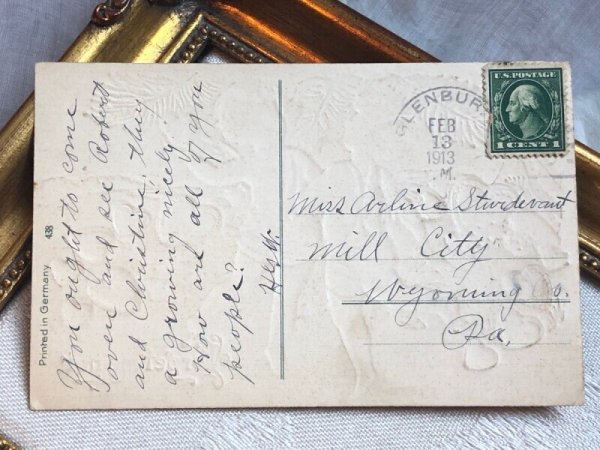 You ought to come
over and see Robert
and Christine. They
a growing nicely
How are all of you
people?
Printed in Germany 438
GLENBUR
FEB
13
1913
M.
U.S. POSTAGE
1 CENT 1
Miss Arline Sturdevant
Mill City
Wyoming Co.
Pa.